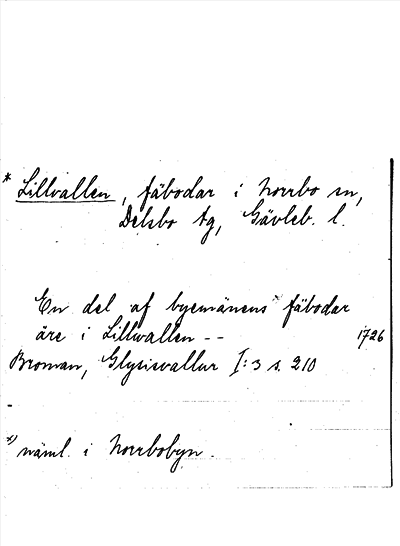 * Lillvallen, fäbodar i Norrbo sn,
Delsbo tg, Gävleb. l.
En del af byemänens x) fäbodar
äre i Lillwallen -- 1726
Broman, Glysisvallur I:3 s. 210
x) näml. i Norrbobyn.